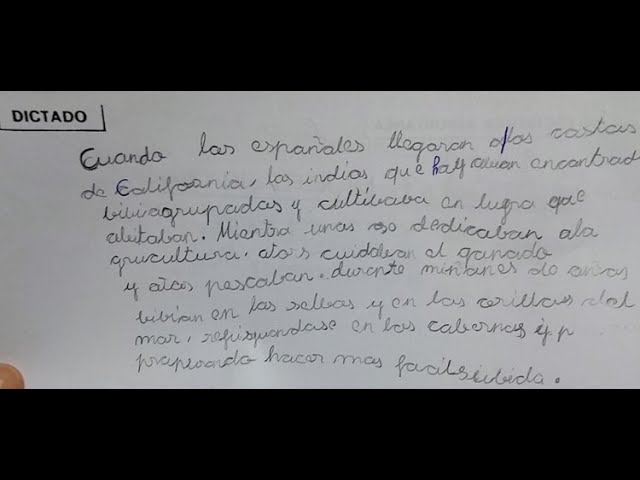 DICTADO
Cuando los españoles llegaron a los costas
de California, los indios que hay avian encontrad
bibiagrupadas y cultibaba en lugra que
abitaban. Mientra unas se dedicaban ala
agrucultura, otros cuidaban el ganado
y otros pescaban. durante miñones de años
bibian en las selbas y en las orillas del
mar, refugiandose en las cabernas y p
praperando hacer mas facil subida.